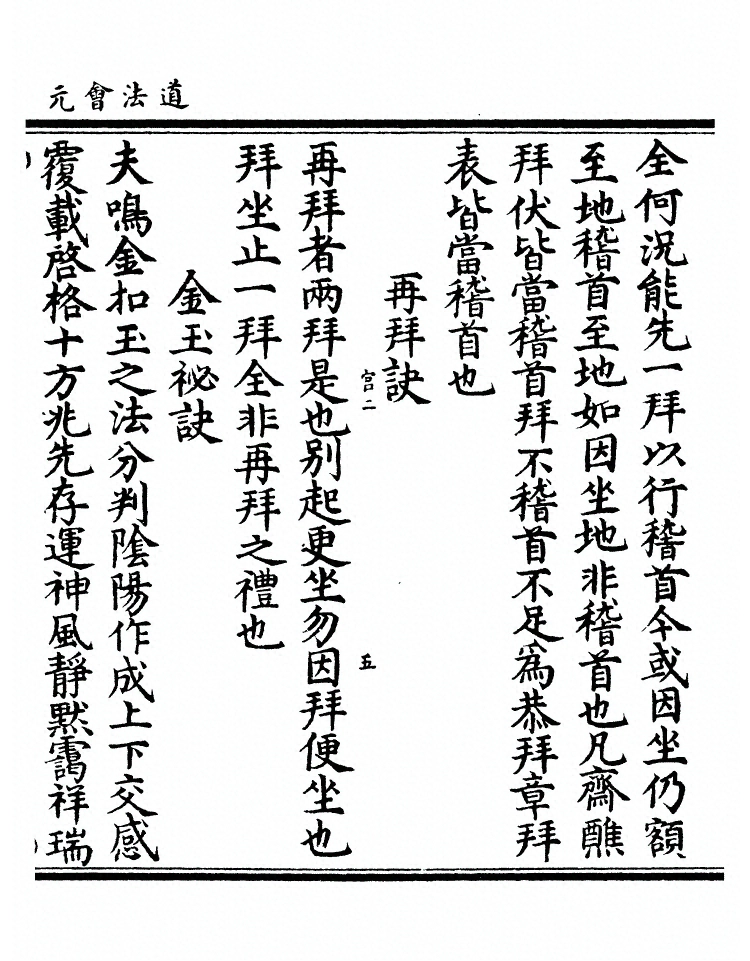 道法會元
全何況能先一拜以行稽首今或因坐仍額
至地稽首至地如因坐地非稽首也凡齋醮
拜伏皆當稽首拜不稽首不足為恭拜章拜
表皆當稽首也
再拜訣
宮二
五
再拜者兩拜是也別起更坐勿因拜便坐也
拜坐止一拜全非再拜之禮也
金玉祕訣
夫鳴金扣玉之法分判陰陽作成上下交感
覆載啓格十方兆先存運神風靜默靄祥瑞